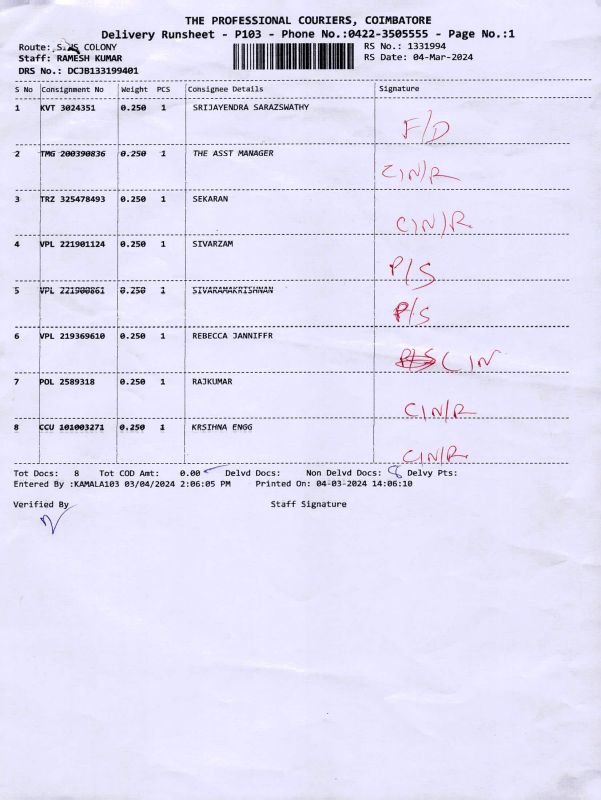 THE PROFESSIONAL COURIERS, COIMBATORE
Delivery Runsheet - P103 - Phone No.:0422-3505555 - Page No.:1
Route: COLONY RS No.: 1331994
Staff: RAMESH KUMAR RS Date: 04-Mar-2024
DRS No.: DCJB133199401
S No Consignment No Weight PCS Consignee Details Signature
1 KVT 3024351 0.250 1 SRIJAYENDRA SARAZSWATHY
F/D
2 TMG 200390836 0.250 1 THE ASST MANAGER
CIN/R
3 TRZ 325478493 0.250 1 SEKARAN
CIN/R
4 VPL 221901124 0.250 1 SIVARZAM
P/S
5 VPL 221900861 0.250 1 SIVARAMAKRISHNAN
P/S
6 VPL 219369610 0.250 1 REBECCA JANNIFFR
P/S CIN
7 POL 2589318 0.250 1 RAJKUMAR
CIN/R
8 CCU 101003271 0.250 1 KRSIHNA ENGG
CIN/R
Tot Docs: 8 Tot COD Amt: 0.00 Delvd Docs: Non Delvd Docs: 8 Delvy Pts:
Entered By :KAMALA103 03/04/2024 2:06:05 PM Printed On: 04-03-2024 14:06:10
Verified By Staff Signature